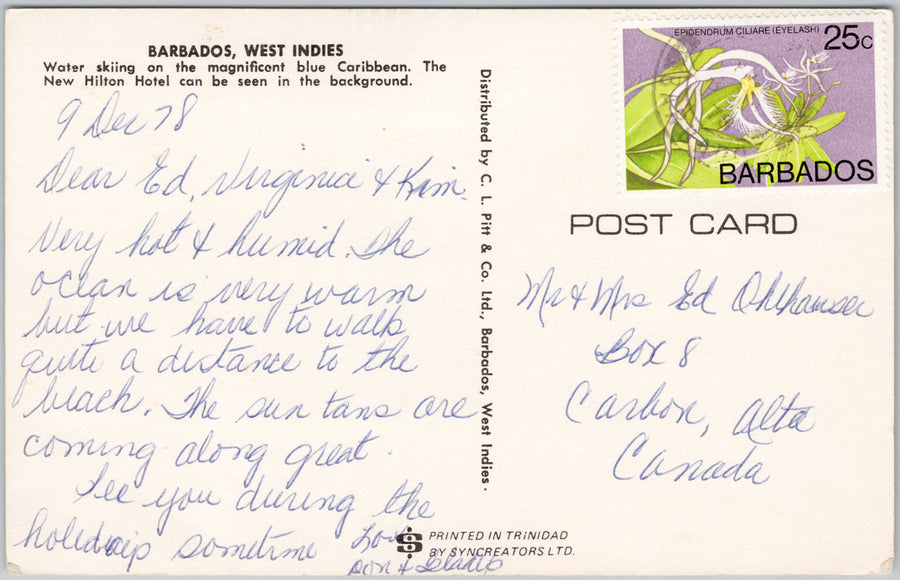 BARBADOS, WEST INDIES
Water skiing on the magnificent blue Caribbean. The
New Hilton Hotel can be seen in the background.
9 Dec 78
Dear Ed, Virginia & Kim.
Very hot & humid. The
ocean is very warm
but we have to walk
quite a distance to the
beach. The sun tans are
coming along great.
See you during the
holidays sometime Love
Don & Gladys
Distributed by C. L. Pitt & Co. Ltd., Barbados, West Indies.
EPIDENDRUM CILIARE (EYELASH) 25c
BARBADOS
POST CARD
Mr & Mrs Ed Ohlhauser
Box 8
Carbon, Alta
Canada
PRINTED IN TRINIDAD
BY SYNCREATORS LTD.